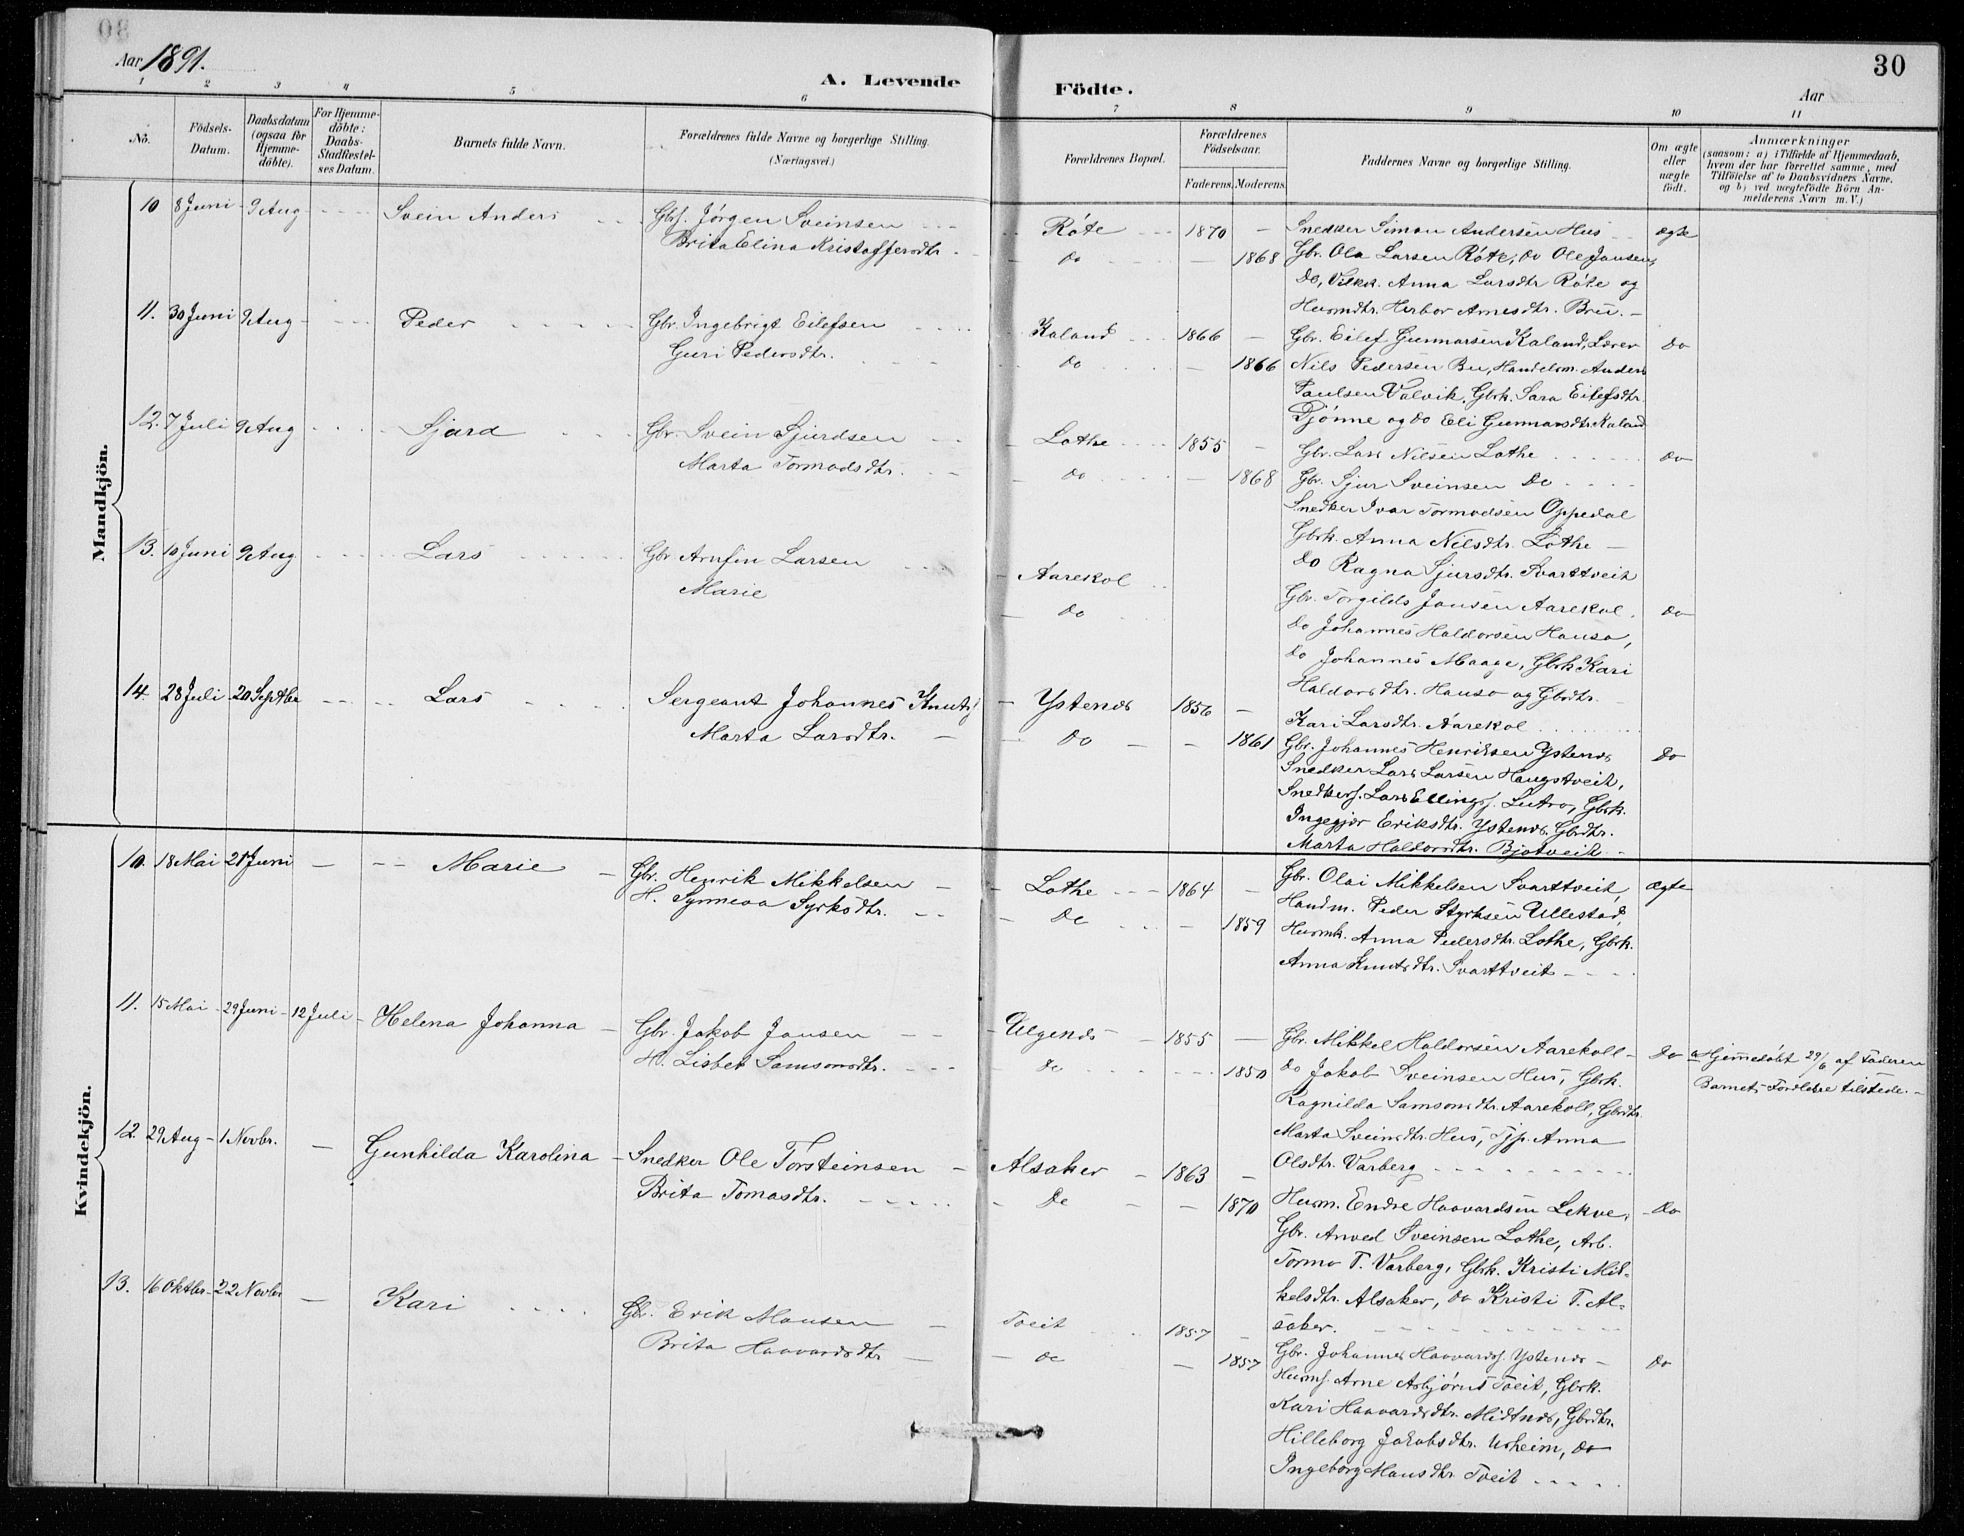 Aar 1891.
A. Levende Födte.
Aar
30
1 2 3 4 5 6 7 8 9 10 11
No.
Födsels-Datum.
Daabsdatum (ogsaa for Hjemme-döbte).
For Hjemme-döbte: Daabs-Stadfæstel-ses Datum.
Barnets fulde Navn.
Forældrenes fulde Navne og borgerlige Stilling. (Næringsvei.)
Forældrenes Bopæl.
Forældrenes Födselsaar.
Faderens. Moderens.
Faddernes Navne og borgerlige Stilling.
Om ægte eller uægte födt.
Anmærkninger
(saasom: a) i Tilfælde af Hjemmedaab,
hvem der har forrettet samme, med
Tilföielse af to Daabsvidners Navne,
og b) ved uægtefödte Börn An-
melderens Navn m. V.)
Mandkjön.
10 8 Juni 9 Aug Svein Anders Gbrs. Jørgen Sveinsen Røte 1870 Snedker Simon Andersen Hus ægte
Brita Elina Kristoffersdtr. do 1868 Gbr. Ola Larsen Røte, do Ole Jansen,
do, Anna Larsdtr Røte og
Husmdtr. Herbor Arnesdtr. Bru.
11. 30 Juni 9 Aug Peder Gbr. Ingebrigt Eilefsen Kaland 1866 Gbr. Eilef Gunnarsen Kaland, Lærer do
Guri Pedersdtr. do 1866 Nils Pedersen Bu, Handelsm. Anders
Paulsen Valvik, Gbrk. Sara Eilefsdtr.
Djønne og do Eli Gunnarsdtr. Kaland
12. 7 Juli 9 Aug Sjurd Gbr. Svein Sjurdsen Lothe 1855 Gbr. Lars Nilsen Lothe do
Marta Tormodsdtr. do 1868 Gbr. Sjur Sveinsen do
Snedker Ivar Tormodsen Oppedal
Gbrk. Anna Nilsdtr. Lothe
do Ragna Sjursdtr. Svarttveit
13. 10 Juni 9 Aug Lars Gbr Arnfin Larsen Aarekol
Marie do Gbr. Torgilds Jansen Aarekol do
do Johannes Haldorsen Hauso,
do Johannes Maage, Gbrk Kari
Haldorsdtr. Hauso og Gbrdtr.
Kari Larsdtr. Aarekol
14. 28 Juli 20 Septbr Lars Sergeant Johannes Knuts. Ystenes 1856
Marta Larsdtr. do 1861 Gbr. Johannes Henriksen Ystenes do
Snedker Lars Larsen Haugstveit,
Snedkers. Lars Ellings. Lutro, Gbrk.
Ingegjør Eriksdtr. Ystenes. Gbrdtr.
Marta Haldorsdtr. Bjotveit.
Kvindekjön.
10. 18 Mai 21 Juni Marie Gbr. Henrik Mikkelsen Lothe 1864 Gbr. Olai Mikkelsen Svarttveit, ægte
H. Synneva Syrksdtr. do 1859 Handm. Peder Styrksen Ullestad,
Husmk. Anna Pedersdtr. Lothe, Gbrk.
Anna Knutsdtr. Svarttveit
11. 15 Mai 29 Juni 12 Juli Helena Johanna Gbr. Jakob Jansen Ulgenes 1855 Gbr. Mikkel Haldorsen Aarekoll do a Hjemmedøbt 29/6 af Faderen
H. Lisbet Samsonsdtr. do 1850 do Jakob Sveinsen Hus, Gbrk. Barnets Forældre tilstede.
Ragnilda Samsonsdtr. Aarekoll, Gbrdtr.
Marta Sveinsdtr. Hus, Tjp. Anna
Olsdtr. Varberg
12. 29 Aug 1 Novbr. Gunhilda Karolina Snedker Ole Torsteinsen Alsaker 1863
Brita Tomasdtr. do 1870 Husm. Endre Haavardsen Lekve, do
Gbr. Anved Sveinsen Lothe, Arb.
Tormo T. Varberg, Gbrk. Kristi Mik-
kelsdtr. Alsaker, do Kristi T. Al-
saker.
13. 16 Oktbr. 22 Novbr Kari Gbr. Erik Monsen Tveit 1857
Brita Haavardsdtr do 1857 Gbr. Johannes Haavards. Ystenes do
Husms. Arne Asbjørns Tveit, Gbrk.
Kari Haavardsdtr. Midtnes, Gbrdtr.
Hilleborg Jakobsdtr. Urheim, do
Ingeborg Monsdtr Tveit